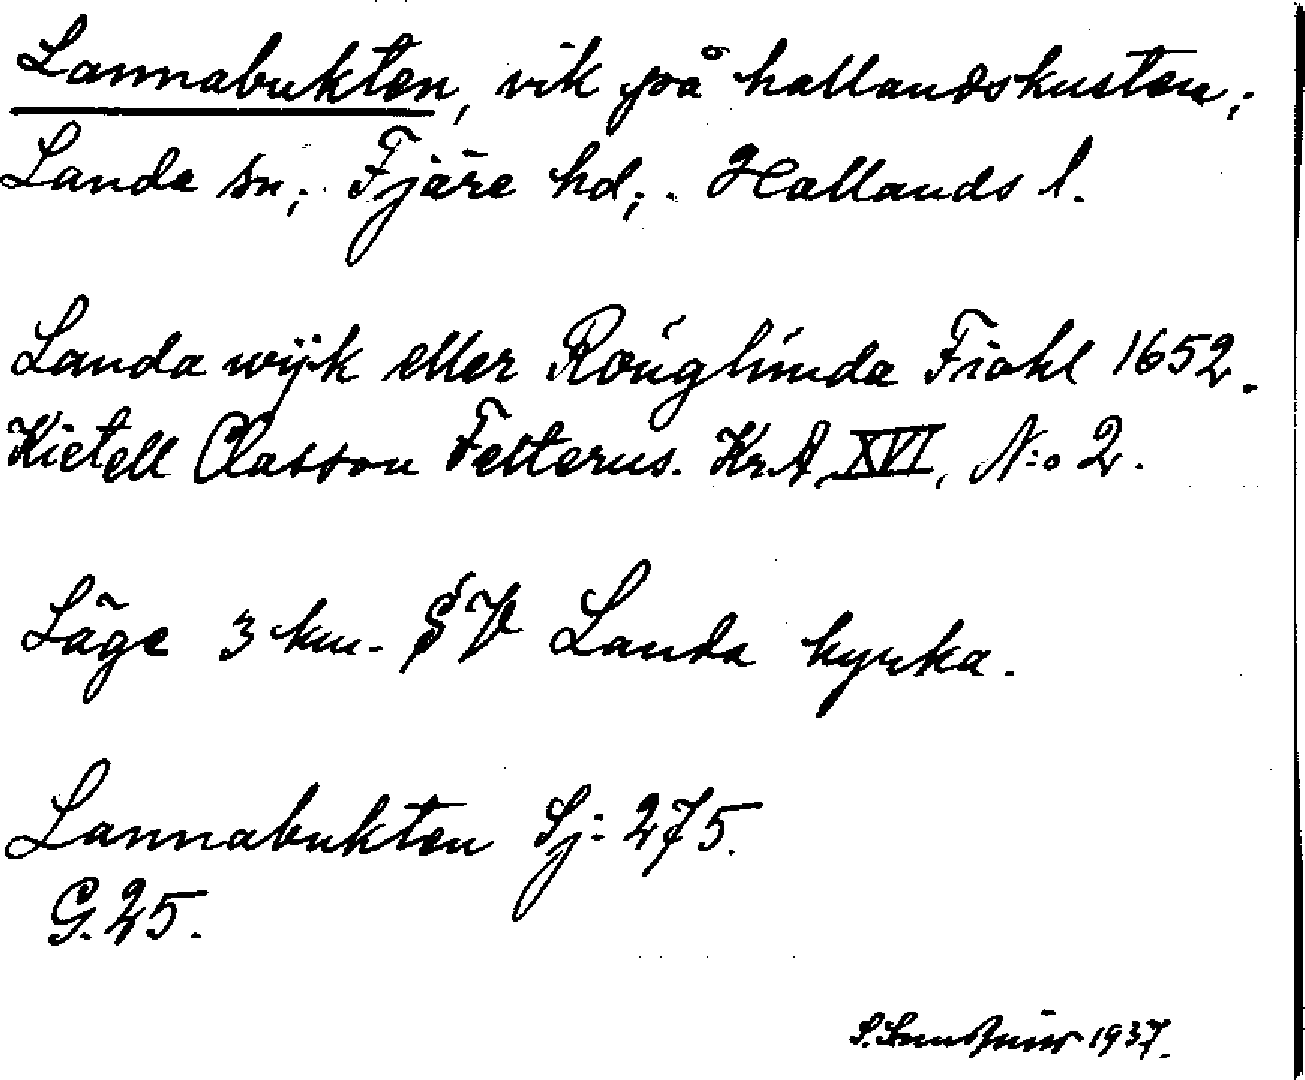 Lannabukten, vik på hallandskusten;
Landa sn; Fjäre hd; Hallands l.
Landa wijk eller Roúghinda Fiohl 1652.
Kietell Classon Felterus. Kr.A. XVI, N:o 2.
Läge 3 km. SV Landa kyrka.
Lannabukten Sj: 275.
G. 25.
S. 1937.